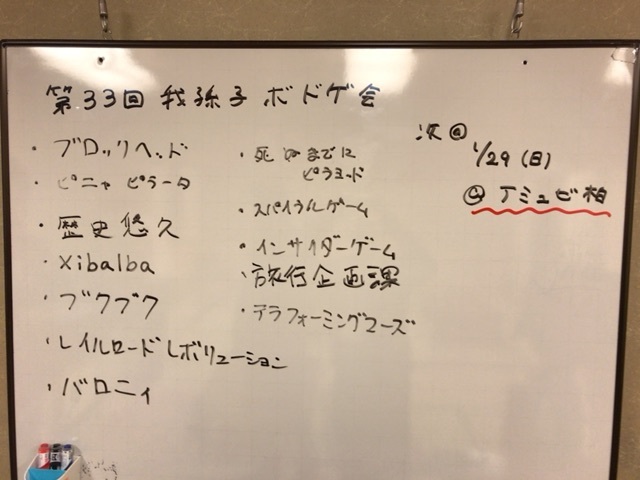 第33回 我孫子 ボドゲ会
・ブロックヘッド
・ピニャ ピラータ
・歴史悠久
・Xibalba
・ブクブク
・レイルロードレボリューション
・バロニィ
・死ぬまでに
ピラミッド
・スパイラルゲーム
・インサイダーゲーム
・旅行企画課
・テラフォーミングマーズ
次回
1/29(日)
@アミュゼ柏